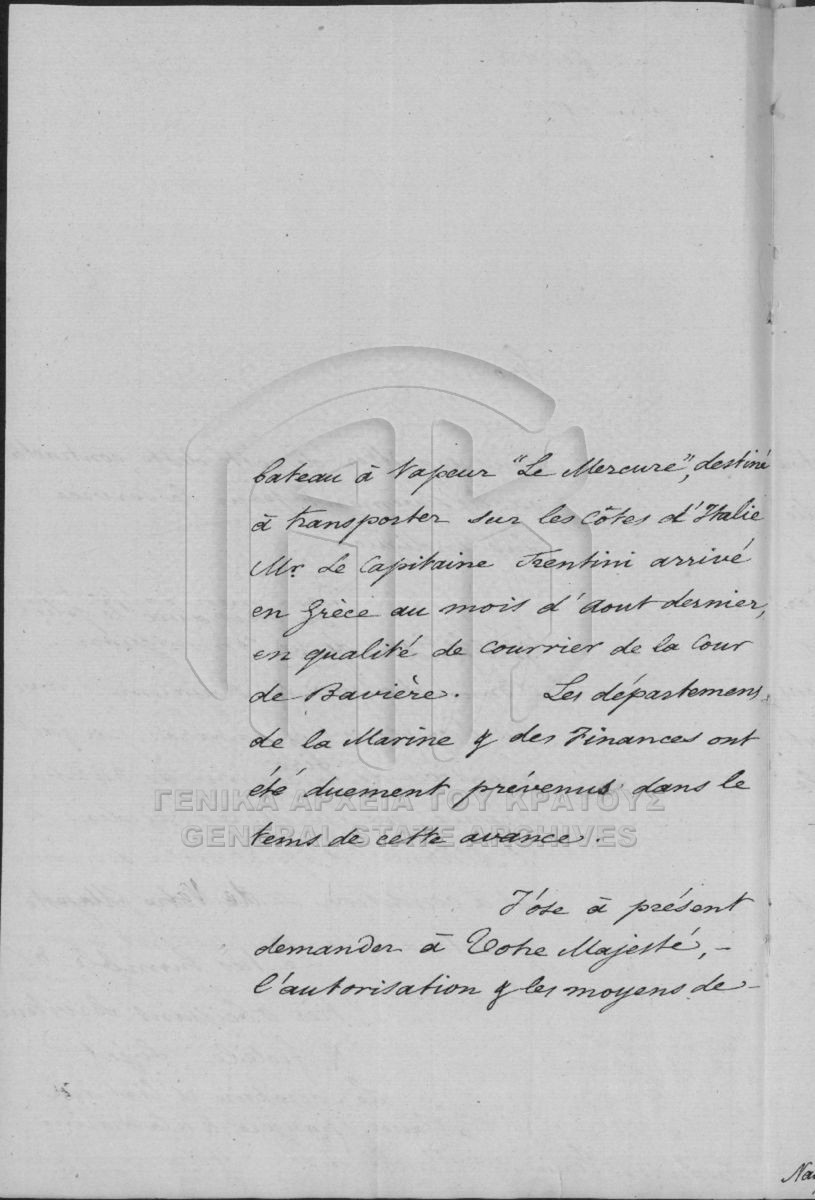 bateau à Vapeur "Le Mercure", destiné
à transporter sur les côtes d'Italie
Mr. Le Capitaine Trentini arrivé
en Grèce au mois d'Aout dernier,
en qualité de courrier de la Cour
de Bavière. Les départemens
de la Marine & des Finances ont
été duement prévenus dans le
ΓΕΝΙΚΑ ΑΡΧΕΙΑ ΤΟΥ ΚΡΑΤΟΥΣ
GENERAL STATE ARCHIVES
tems de cette avance.
J'ose à présent
demander à Votre Majesté, -
l'autorisation & les moyens de -